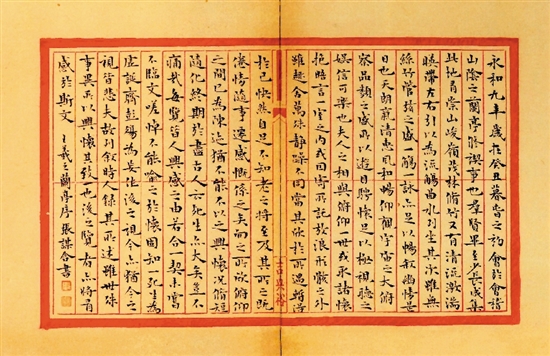 永和九年歲在癸丑暮春之初會於會稽
山陰之蘭亭脩禊事也群賢畢至少長咸集
此地有崇山峻嶺茂林脩竹又有清流激湍
映帶左右引以為流觴曲水列坐其次雖無
絲竹管絃之盛一觴一詠亦足以暢敘幽情是
日也天朗氣清惠風和暢仰觀宇宙之大俯
察品類之盛所以遊目騁懷足以極視聽之
娛信可樂也夫人之相與俯仰一世或取諸懷
抱晤言一室之內或因寄所託放浪形骸之外
雖趣舍萬殊靜躁不同當其欣於所遇暫得
於己快然自足不知老之將至及其所之既
倦情隨事遷感慨係之矣向之所欣俯仰
之間已為陳迹猶不能不以之興懷況脩短
隨化終期於盡古人云死生亦大矣豈不
痛哉每覽昔人興感之由若合一契未嘗
不臨文嗟悼不能喻之於懷固知一死生為
虛誕齊彭殤為妄作後之視今亦猶今之
視昔悲夫故列敘時人錄其所述雖世殊
事異所以興懷其致一也後之覽者亦將有
感於斯文 王羲之蘭亭序 張謀合書